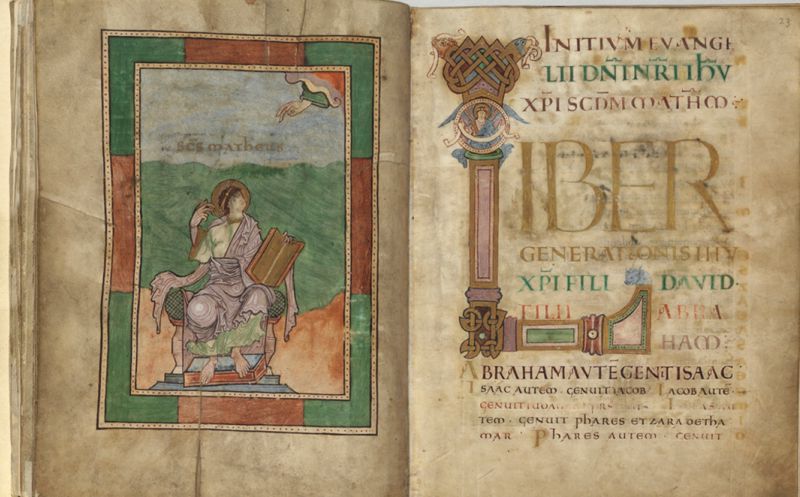 SC̄S MATHEUS
23
INITIVM EVANGE
LII DN̄I NR̄I IH̄V
XP̄I SCD̄M MATH̄M:
LIBER
GENERATIONIS IHV
XP̄I FILI DAVID·
FILII ABRA
HAM:
ABRAHAM AUTĒ GENT ISAAC
ISAAC AUTEM · GENUIT IACOB IACOB AUTĒ
GENUIT
TEM · GENUIT PHARES ET ZARA DE THA
MAR · PHARES AUTEM · GENUIT